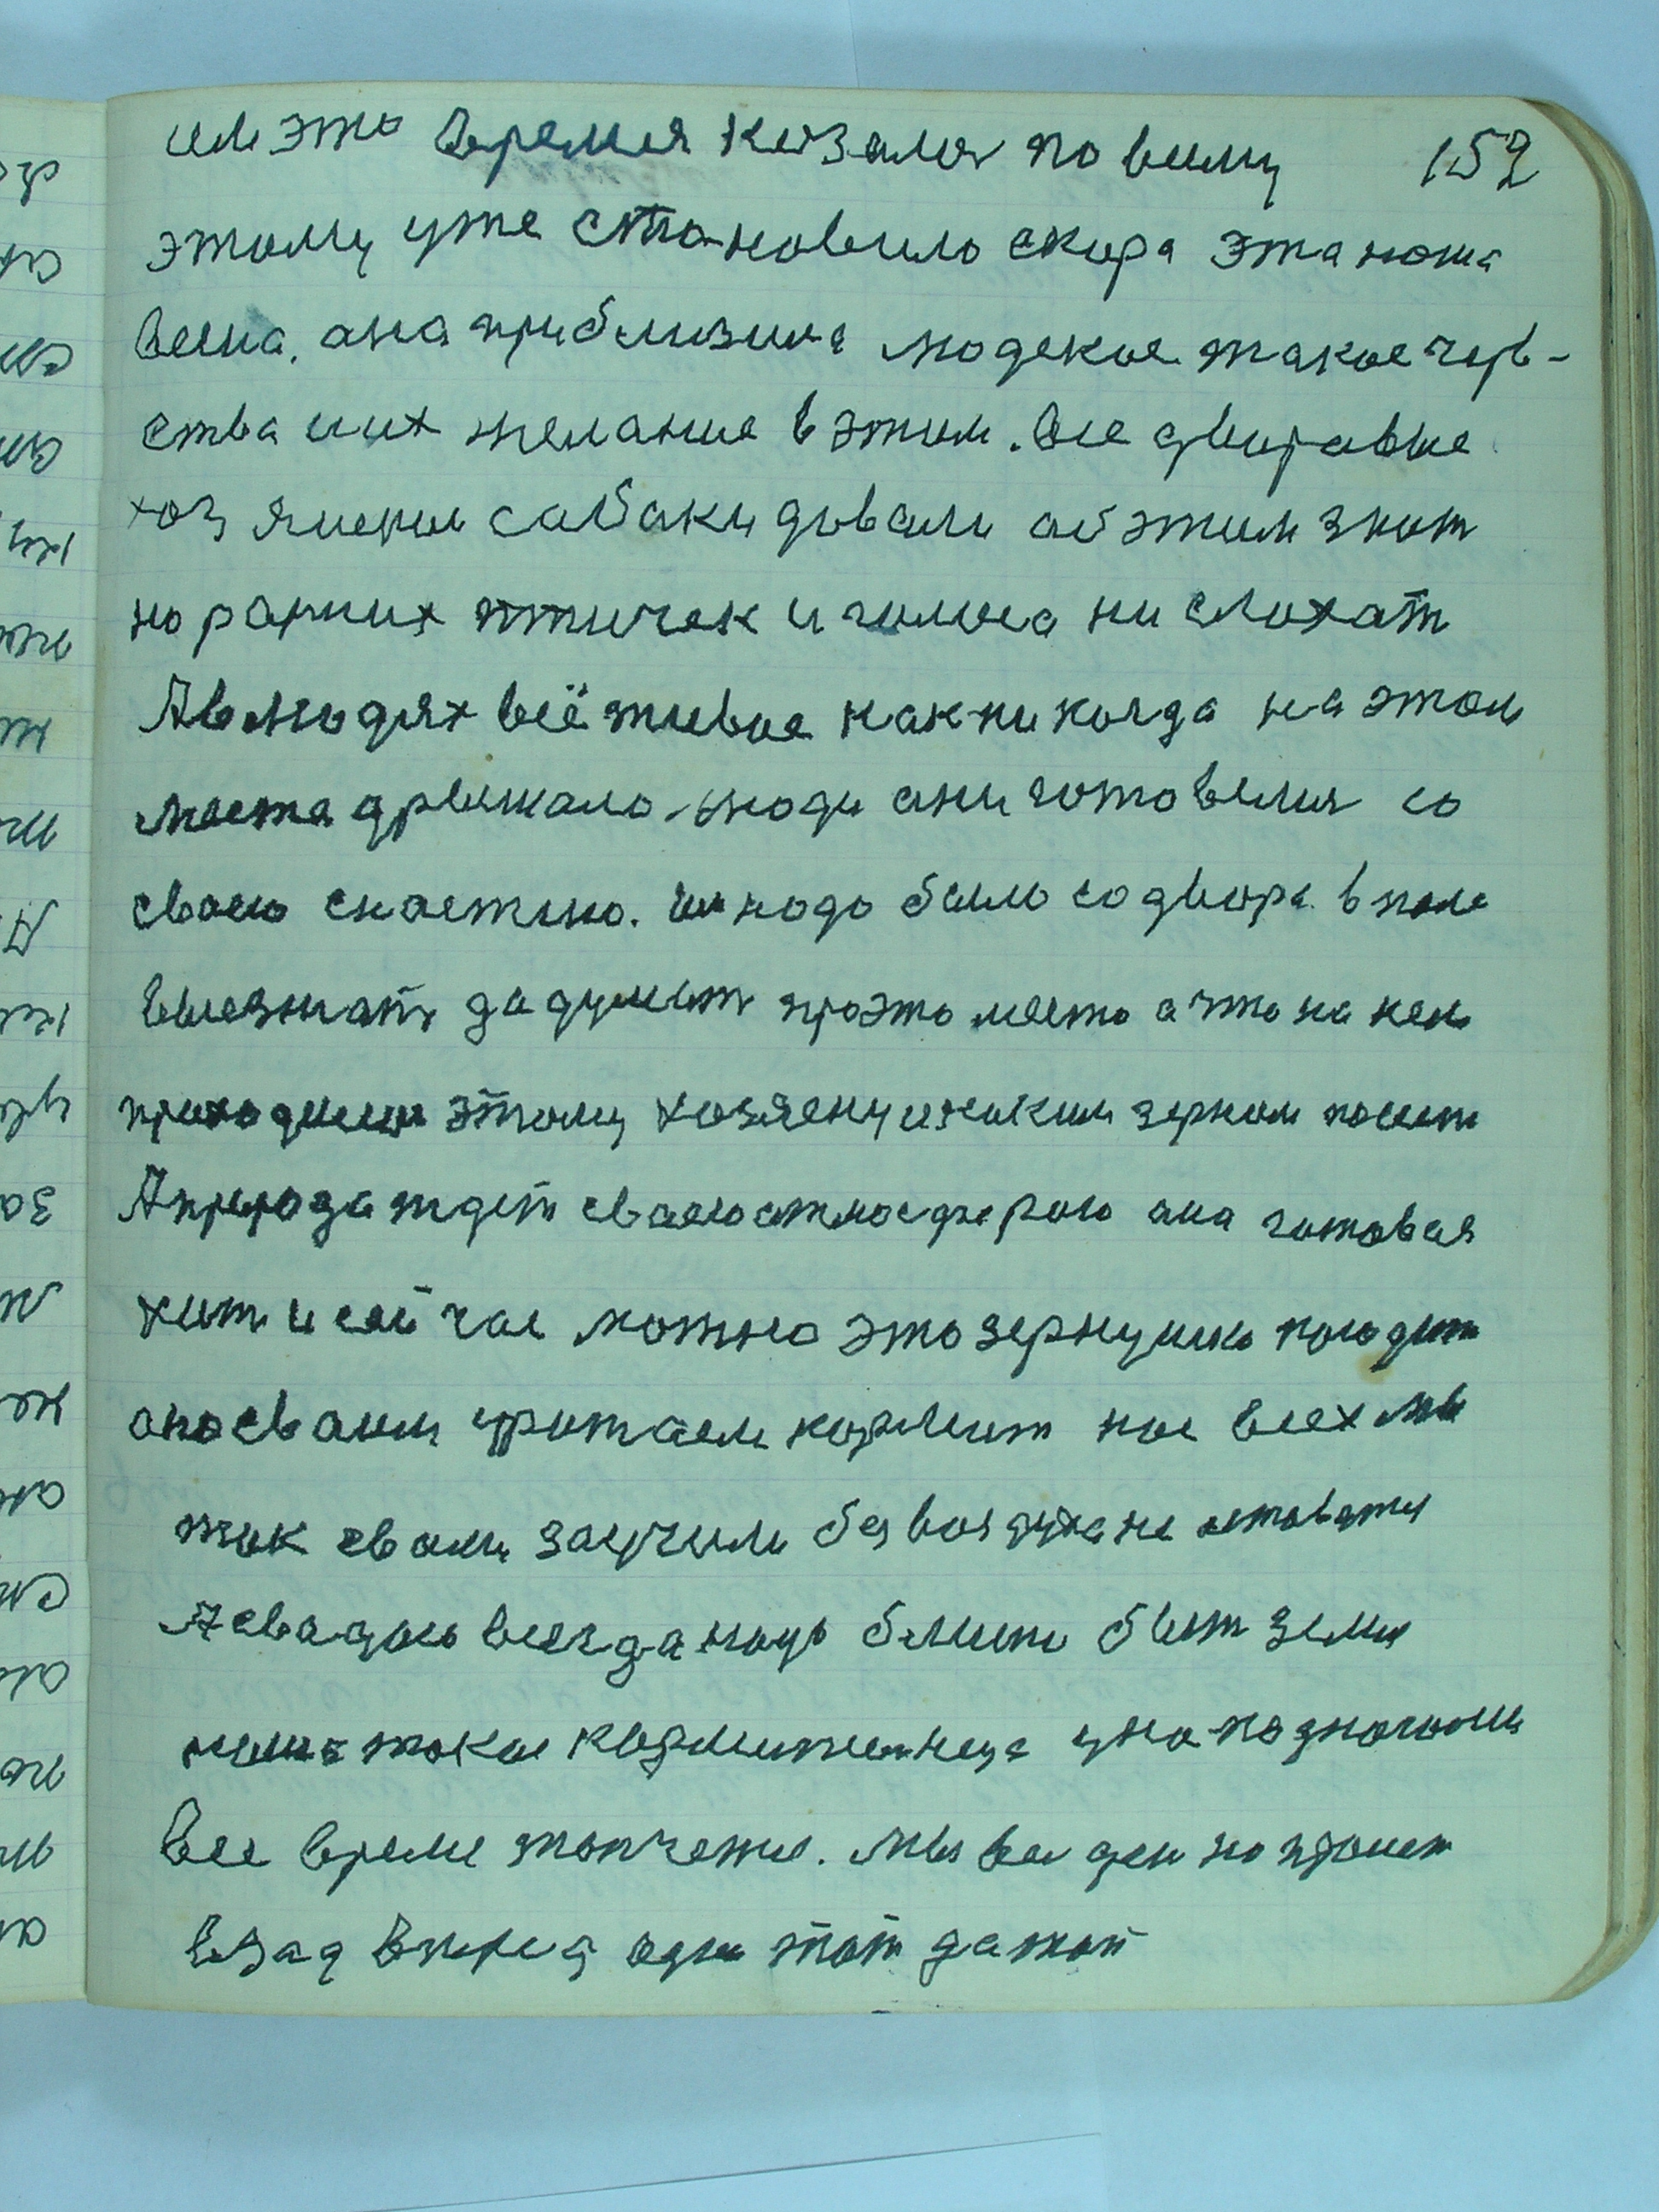 им это время казалос по всиму 152
этому уже становило скора эта ноша
весна. она приблизила людское такое чув-
ства иих желание вэтим. Все дваравые
хозяиские сабаки давали обэтим знат
но ранних птичек и голоса ни слыхат
Авлюдях всё живое как никогда на этом
места држжало. люди они готовелис со
сваею снастию. Им надо было со двора в поле
выезжать да думыт проэто место а что на нем
приходилос этому хозяену и каким зерном посет
А природа ждет сваею атмосферою она готовая
хит и сейчас можно это зернушко погодит
оно сваим урожаем кормит нас всех мы
так сваим заучили без воздуха не оставатся
А с вадою всегда надо близко быт земля
наша такая кормителница у нас под ногами
все время топчется. Мы вес ден но прочет
взад вперед один тот да тот